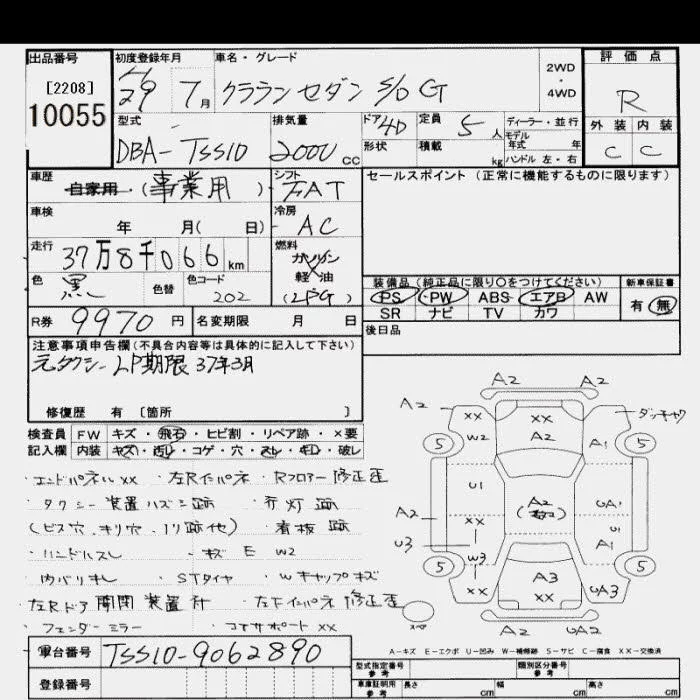 出品番号
[2208]
10055
初度登録年月
H29 7月
車名・グレード
クラウンセダン S/D G
2WD
・
4WD
評価点
R
外装 内装
C C
型式
DBA-TSS10
排気量
2000cc
ドア 4D
形状
定員 5人
積載 kg
ディーラー・並行
モデル年式 年
ハンドル 左・右
車歴
自家用 (事業用)
シフト
FAT
車検
年 月( 日)
冷房
AC
走行
37万8千066km
燃料
ガソリン
軽油
(LPG)
色
黒
色替
色コード
202
R券
9970円
名変期限 月 日
セールスポイント (正常に機能するものに限ります)
装備品 (純正品に限り○をつけてください)
PS PW ABS エアB AW
SR ナビ TV カワ
新車保証書
有 無
後日品
注意事項申告欄(不具合内容等は具体的に記入して下さい)
元タクシー LP期限 37年3月
修復歴 有 [箇所 ]
検査員 FW キズ・飛石・ヒビ割・リペア跡・×要
記入欄 内装 キズ・汚レ・コゲ・穴・スレ・キレ・破レ
・エンドパネル XX ・左Rインパネ ・Rフロアー 修正歪
・タクシー装置ハズシ跡 ・行灯跡
(ビス穴、キリ穴、ノリ跡他) ・看板跡
・ハンドルスレ ・キズ E W2
・内バリキレ ・STタイヤ ・Wキャップキズ
左Rドア開閉装置付 ・左Fインパネ修正歪
・フェンダーミラー ・コアサポート XX
A2 A2
A2 XX XX ダッチャク
5 W2 A2 A1 5
U1
A2 A2 UA1
XX
U3 A1
W3
5 XX A3 XX UA3 5
スペア A2 UA2
A-キズ E-エクボ U-凹み W-補修跡 S-サビ C-腐食 XX-交換済
車台番号
TSS10-9062890
登録番号
型式指定番号
参考
類別区分番号
参考
車庫証明用
参考
長さ cm 幅 cm 高さ cm